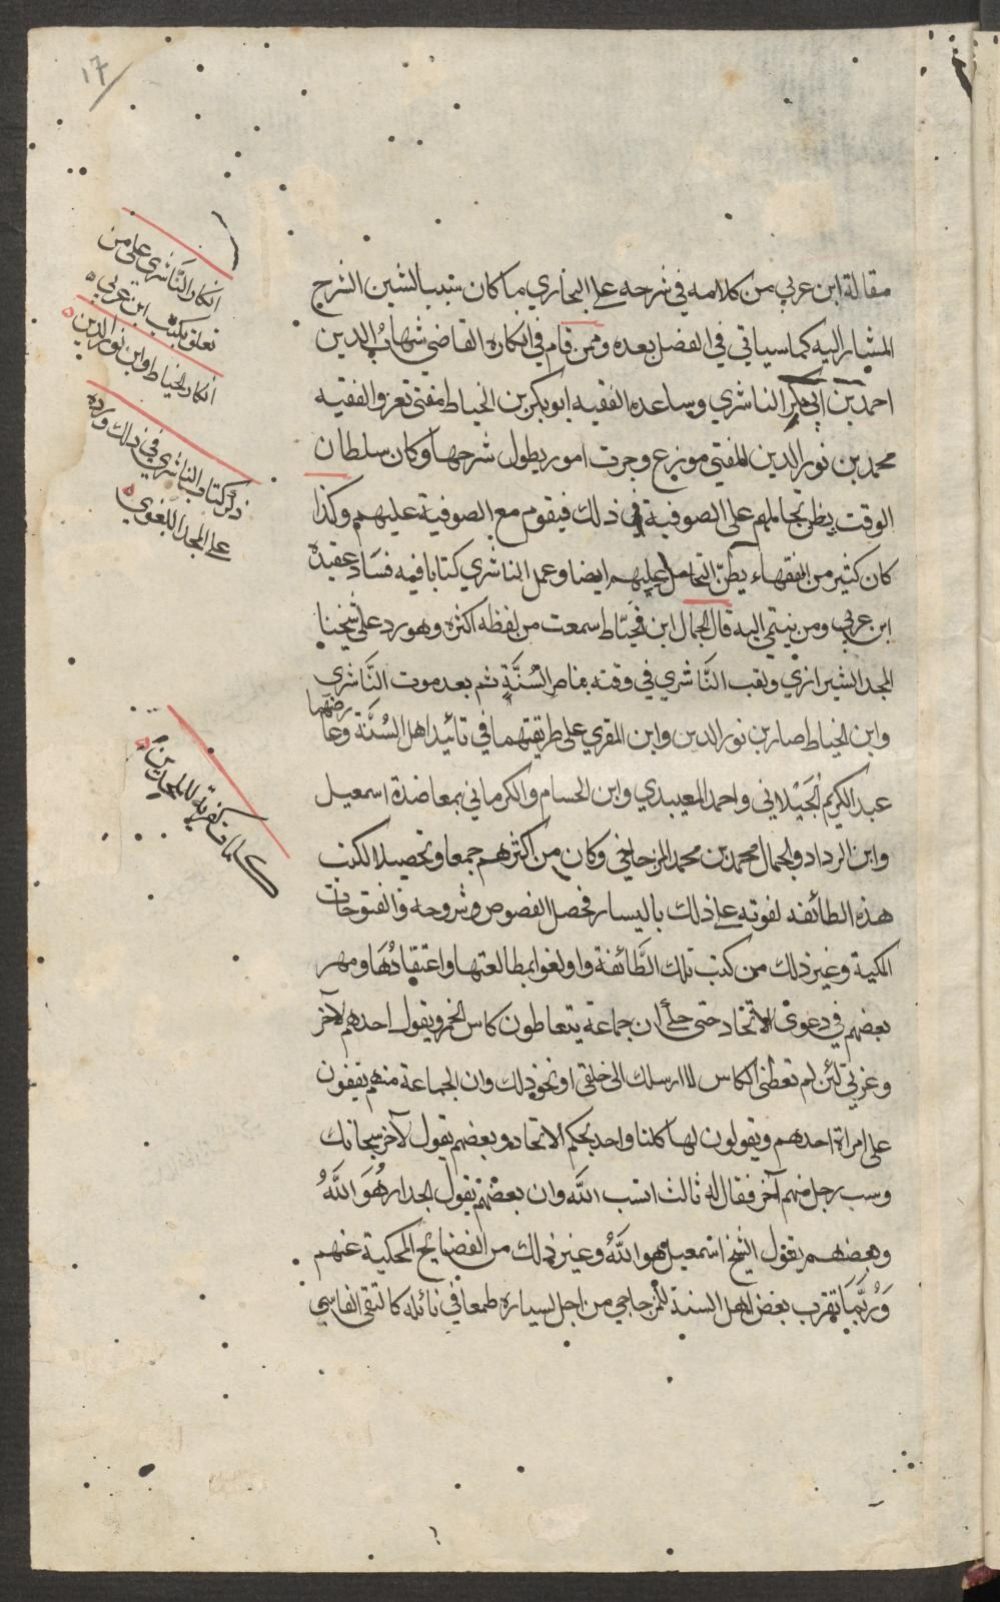 ١٧
مقالة ابن عربي من كلامه في شرحه على البخاري ما كان سبب الشين الشرح
المشار اليه كما سياتي في الفصل بعده وممن قام في انكاره القاضي شهاب الدين
احمد بن ابي بكر الناشري وساعده الفقيه ابو بكر بن الخياط مفتي تعز والفقيه
محمد بن نور الدين المفتي موزع وجرت امور يطول شرحها وكان سلطان
الوقت يظن تحاملهم على الصوفية في ذلك فيقوم مع الصوفية عليهم وكذا
كان كثير من الفقهاء يظن التحامل عليهم ايضا وعمل الناشري كتابا فيه فساد عقيدة
ابن عربي ومن ينتمي اليه قال الجمال ابن الخياط سمعت من لفظه اكثره وهو رد على شيخنا
المجد الشيرازي ولقب الناشري في وقته بناصر السُنَّة ثم بعد موت النَّاشري
وابن الخياط صار بن نور الدين وابن المقري على طريقتهما في تائيد اهل السُنَّة وعارضهما
عبد الكريم الجَيْلاني واحمد المعيبدي وابن الحسام والكرماني بمعاضدة اسمعيل
وابن الرداد والجمال محمد بن محمد المزجاجي وكان من اكثرهم جمعا وتحصيلا لكتب
هذه الطائفه لقوته على ذلك باليسار فحصل الفصوص وشروحه والفتوحات
المكية وغير ذلك من كتب تلك الطَّائفة واولعوا بمطالعتها واعتقادها ومهر
بعضهم في دعوى الاتحاد حتى حكى ان جماعة يتعاطون كاس الخمر ويقول احدهم لآخر
وعزتي لئن لم تعطني الكاس لا ارسلك الى خلقي او نحو ذلك وان الجماعة منهم يقفون
على امراة احدهم ويقولون لها كلنا واحد بحكم الاتحاد وبعضهم يقول لآخر سبحانك
وسب رجل منهم آخر فقال له ثالث اتسب الله وان بعضهم يقول الجدار هُوَ اللَّهُ
وبعضهم يقول الشيخ اسمعيل هو اللَّهُ وغير ذلك من الفضائح المحكية عنهم
وَرُبَّمَا تقرب بعض اهل السنة للمزجاجي من اجل يساره طمعا في نائله كالتقى الفاسي
انكار النَّاشري على من
تعلق بكتب ابن عربي
انكار الخياط وابن نور الدين
ذكر كتاب الناشري في ذلك ورده
على المجد اللغوي
كلمات كفرية للملحدين